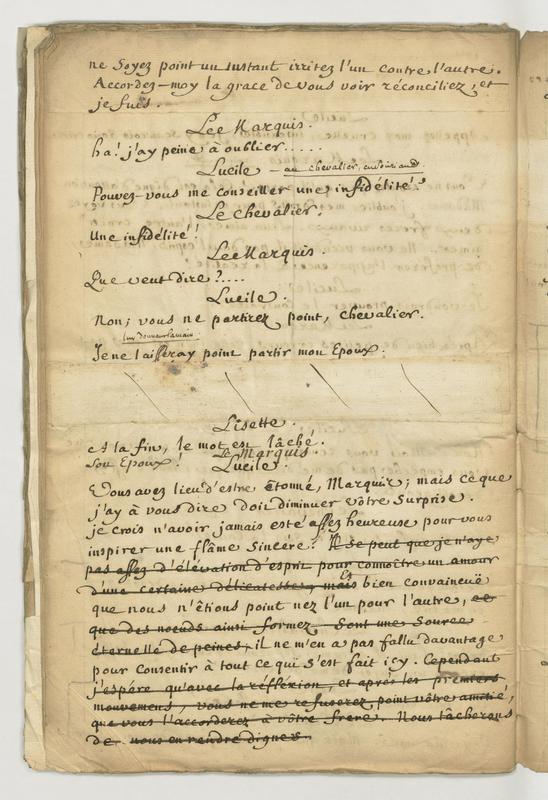 ne Soyez point un instant irritez l'un contre l'autre.
Accordez-moy la grace de vous voir réconciliez, et
je suis.
Lee Marquis.
ha! j'ay peine à oublier.....
Lucile - au chevalier, en souriant.
Pouvez-vous me conseiller une infidélité?
Le chevalier.
Une infidélité!
Lee Marquis.
Que veut dire?....
Lucile.
Non; vous ne partirez point, chevalier.
luy donnant la main.
Je ne laisseray point partir mon Epoux.
Lisette.
et la fin, le mot est lâché.
Le Marquis.
Son Epoux!
Lucile.
Vous avez lieu d'estre étonné, Marquis; mais ce que
j'ay à vous dire doit diminuer vôtre surprise.
je crois n'avoir jamais esté assez heureuse pour vous
inspirer une flâme sincére. Il se peut que je n'aye
pas assez d'élévation d'esprit pour connoître un amour
d'une certaine délicatesse, mais Et bien convaincuë
que nous n'étions point nez l'un pour l'autre, et
que des nœuds ainsi formez sont une source
éternelle de peines, il ne m'en a pas fallu davantage
pour consentir à tout ce qui s'est fait icy. Cependant
j'espére qu'avec la réfléxion, et après les premiers
mouvemens, vous ne me refuserez point vôtre amitié,
que vous l'accorderez à vôtre frere. Nous tâcherons
de nous en rendre dignes.